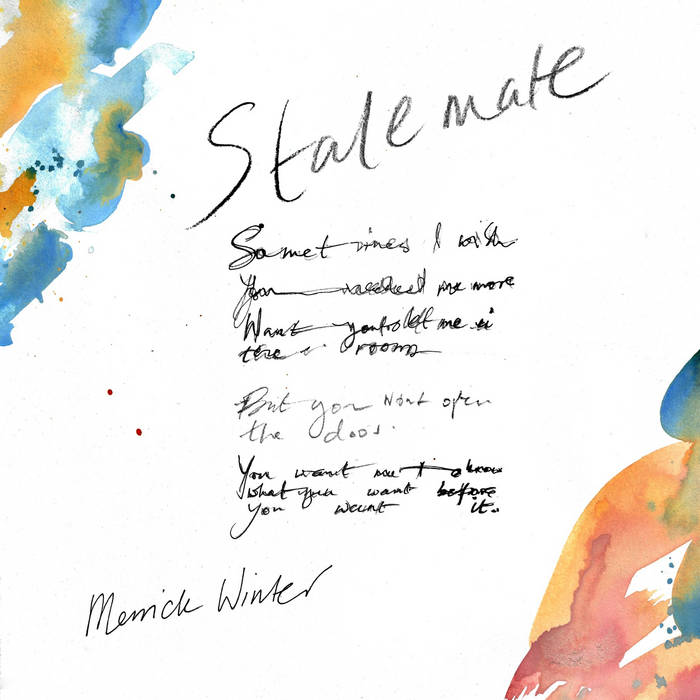 Stalemate
Sometimes I wish
You needed me more
Want you to let me in
the room
But you wont open
the door.
You want me to know
what you want before
you want it.
Merrick Winter